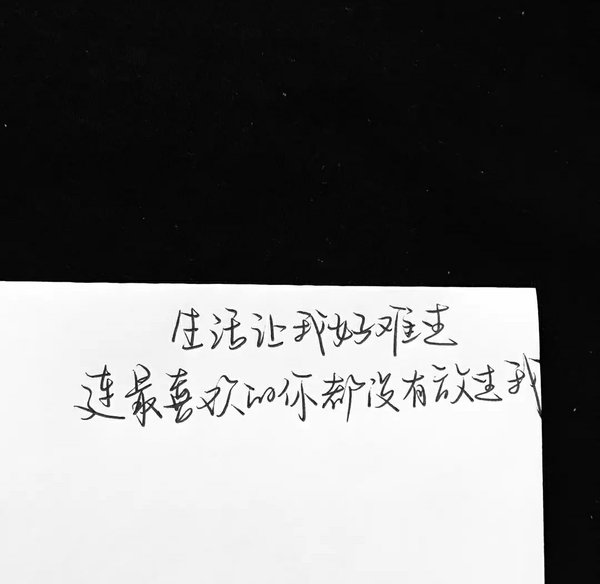 生活让我好难
连最喜欢的你都没有放我